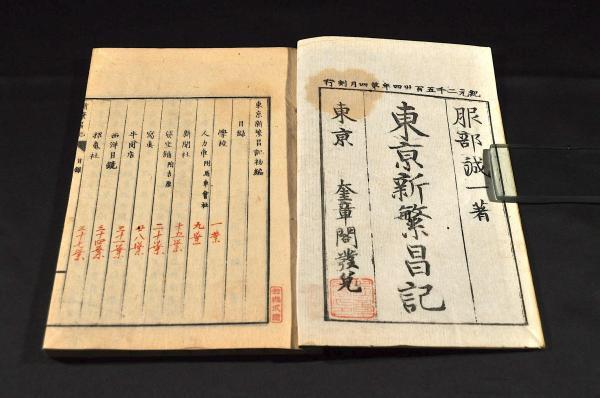 紀元二千五百卅四年第四月刻行
服部誠一著
東京新繁昌記
東京 奎章閣發兌
東京新繁昌記初編
目録
學校 一葉
人力車附馬車會社 九葉
新聞社 十五葉
貸坐鋪附吉原 二十葉
寫真 廿八葉
牛肉店 三十一葉
西洋目鏡 三十四葉
招魂社 三十七葉
目録